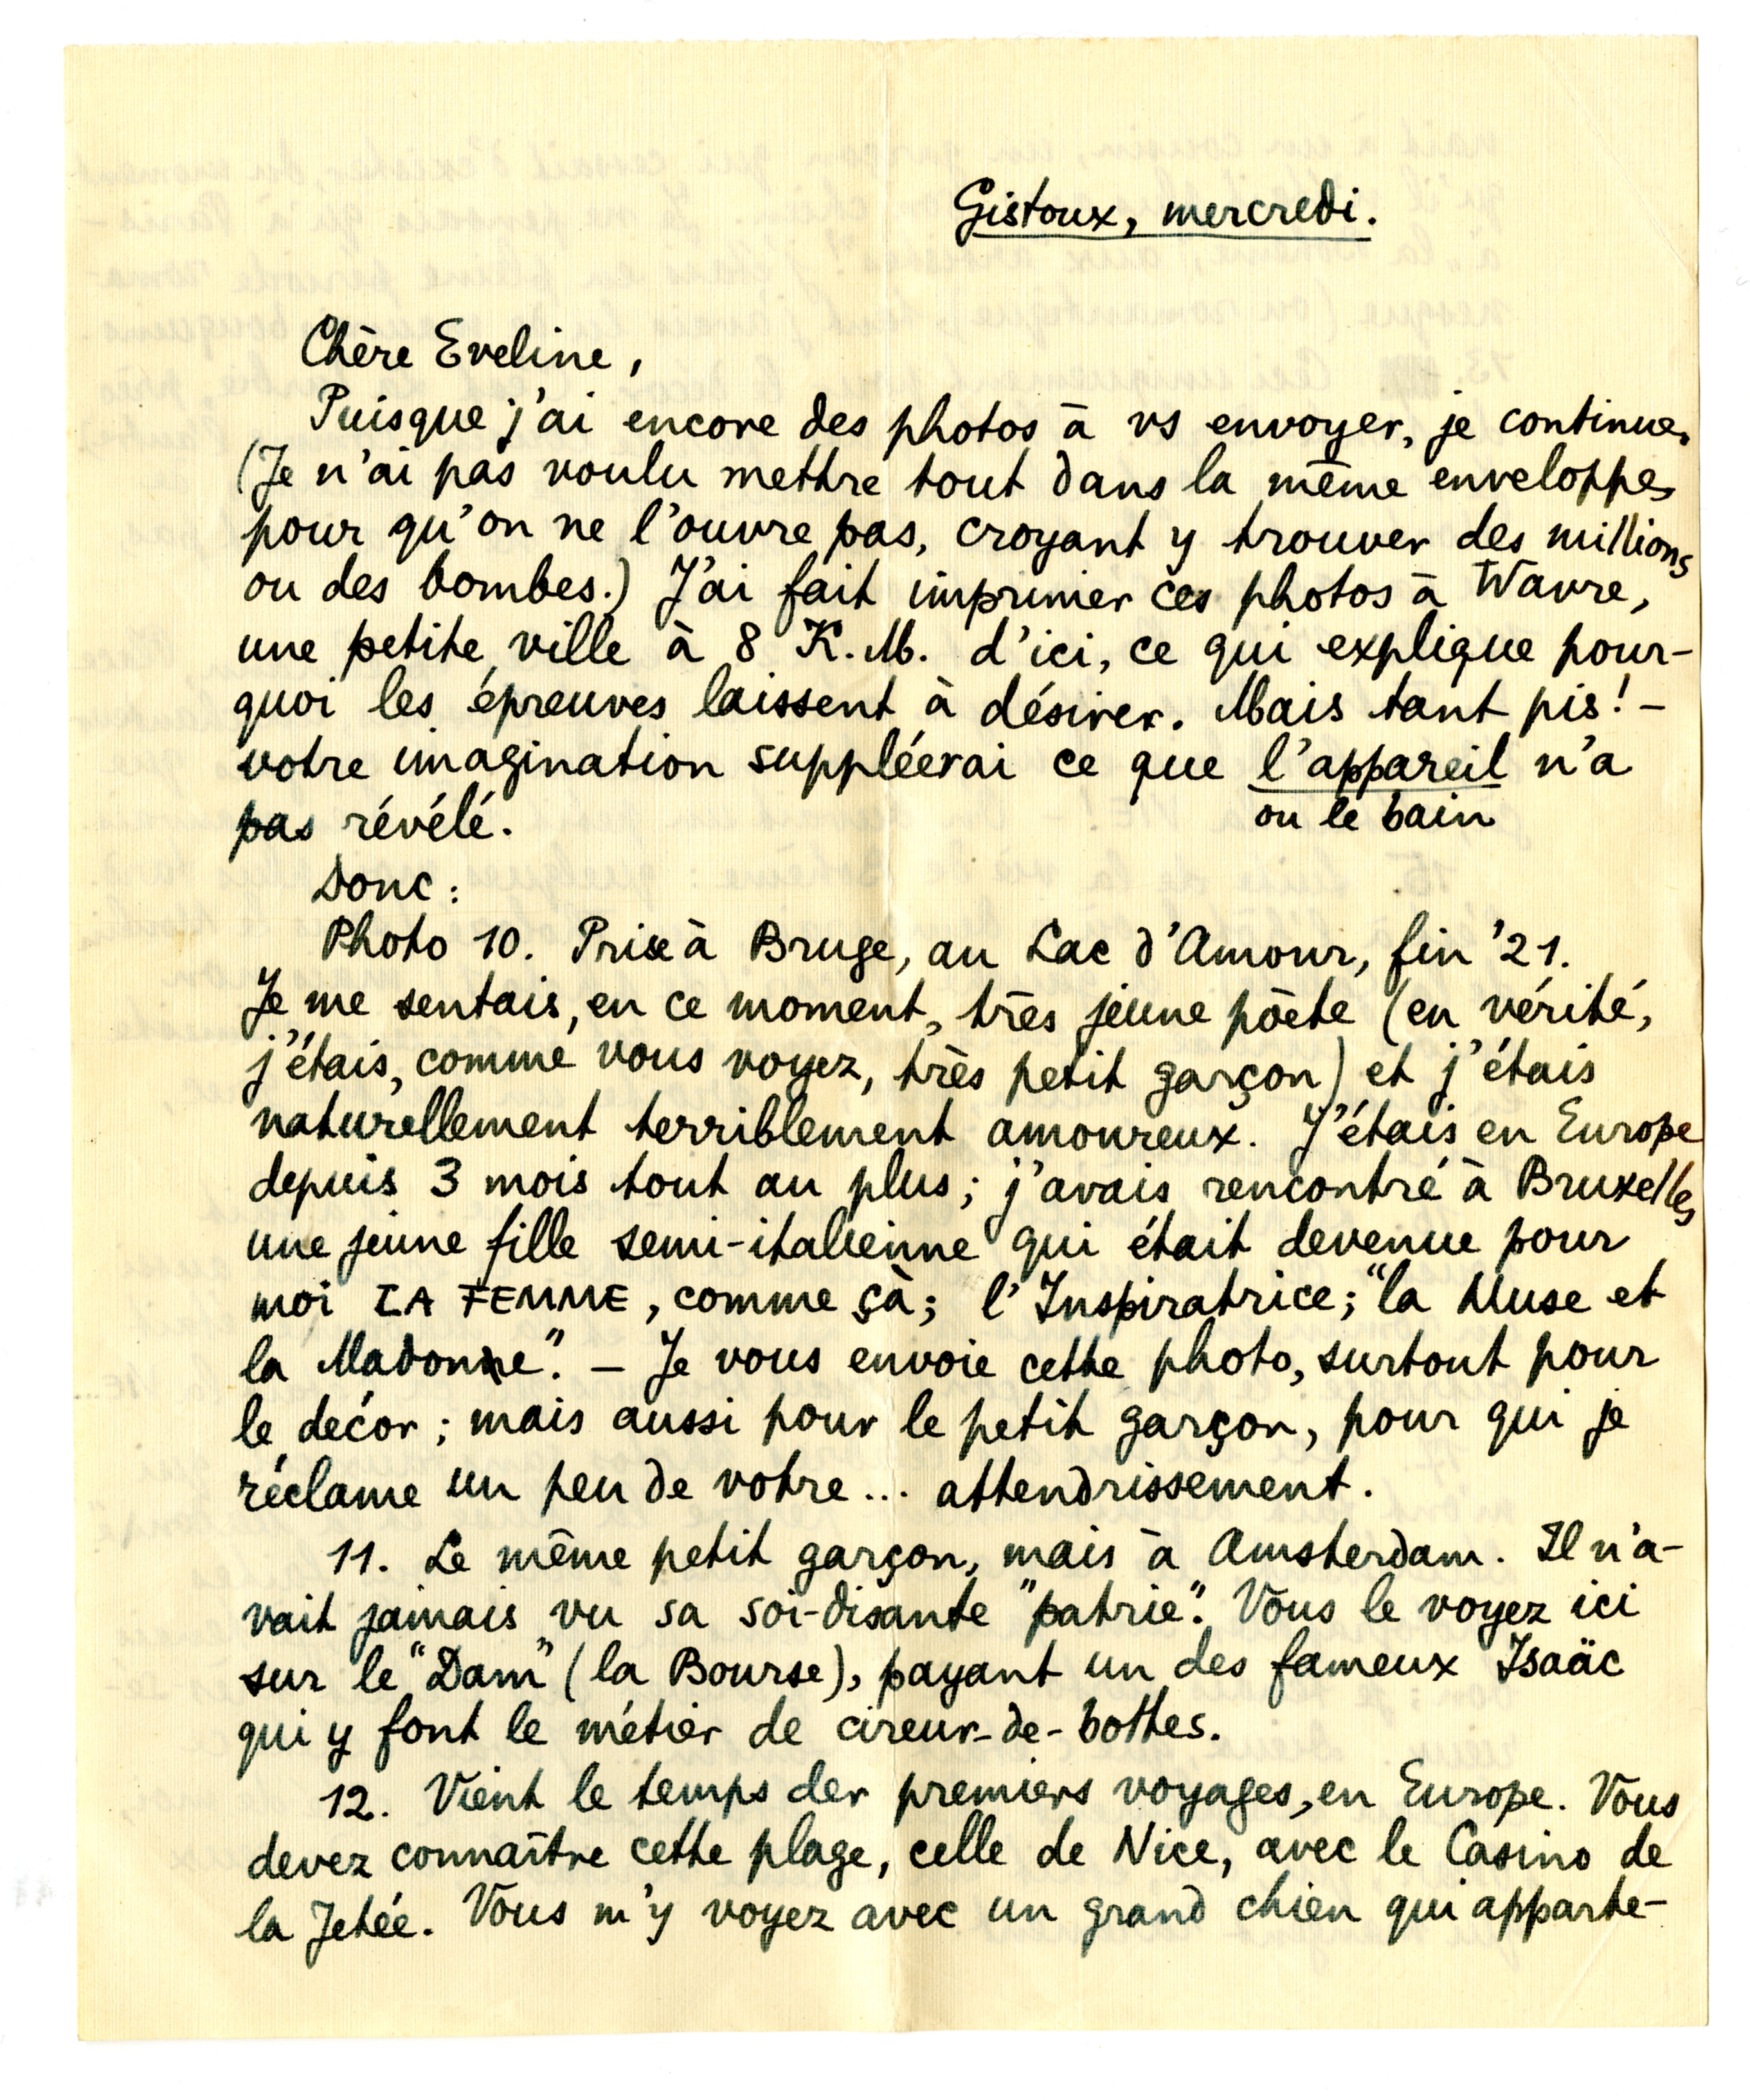 Gistoux, mercredi.
Chère Eveline,
Puisque j'ai encore des photos à vs envoyer, je continue.
(Je n'ai pas voulu mettre tout dans la même enveloppe,
pour qu'on ne l'ouvre pas, croyant y trouver des millions
ou des bombes.) J'ai fait imprimer ces photos à Wavre,
une petite ville à 8 K.M. d'ici, ce qui explique pour-
quoi les épreuves laissent à désirer. Mais tant pis! –
votre imagination suppléerai ce que l'appareil n'a
ou le bain
pas révélé.
Donc:
Photo 10. Prise à Bruge, au Lac d'Amour, fin '21.
Je me sentais, en ce moment, très jeune pòete (en vérité,
j'étais, comme vous voyez, très petit garçon) et j'étais
naturellement terriblement amoureux. J'étais en Europe
depuis 3 mois tout au plus; j'avais rencontré à Bruxelles
une jeune fille semi-italienne qui était devenue pour
moi LA FEMME, comme çà; l'Inspiratrice; "la Muse et
la Madonne". – Je vous envoie cette photo, surtout pour
le decór; mais aussi pour le petit garçon, pour qui je
réclame un peu de votre... attendrissement.
11. Le même petit garçon, mais à Amsterdam. Il n'a-
vait jamais vu sa soi-disante "patrie". Vous le voyez ici
sur le "Dam" (la Bourse), payant un des fameux Isaäc
qui y font le métier de cireur-de-bottes.
12. Vient le temps der premiers voyages, en Europe. Vous
devez connaître cette plage, celle de Nice, avec le Casino de
la Jetée. Vous m'y voyez avec un grand chien qui apparte-